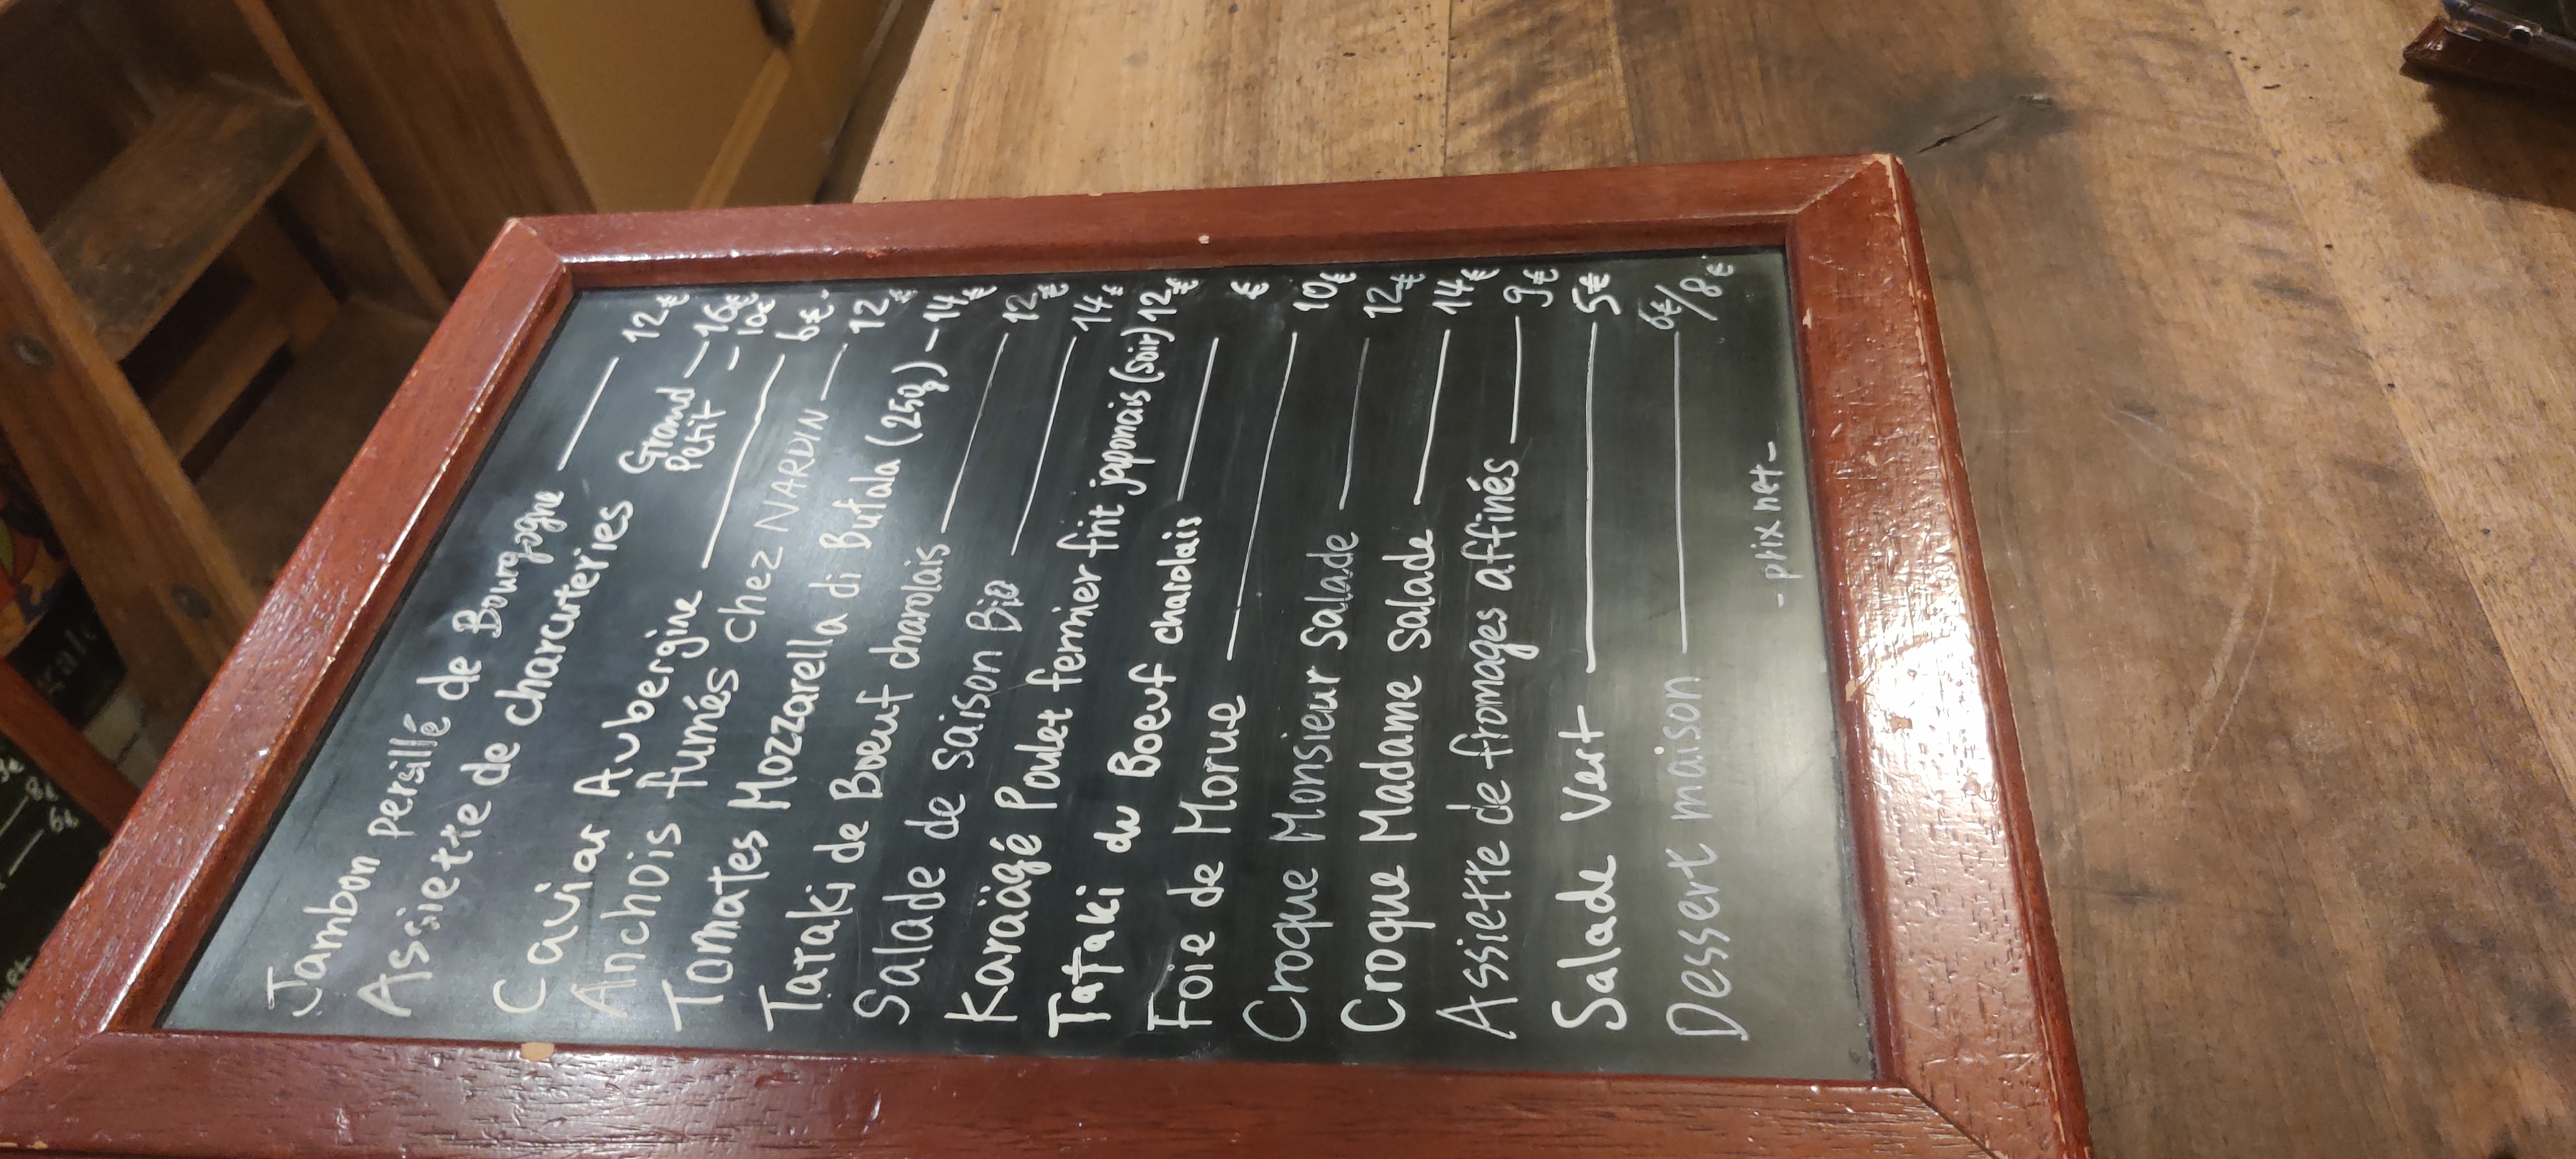 Jambon persillé de Bourgogne — 12€
Assiette de charcuteries Grand — 16€
Petit — 10€
Caviar Aubergine — 6€
Anchois fumés chez NARDIN — 12€
Tomates Mozzarella di Bufala (25g) — 14€
Tataki de Boeuf charolais — 12€
Salade de saison Bio — 14€
Karaàgé Poulet fermier frit japonais (soir) 12€
Tataki du Boeuf charolais — €
Foie de Morue — 10€
Croque Monsieur Salade — 12€
Croque Madame salade — 14€
Assiette de fromages affinés — 9€
Salade Vert — 5€
Dessert maison — 6€/8€
- prix net -
8€
6€